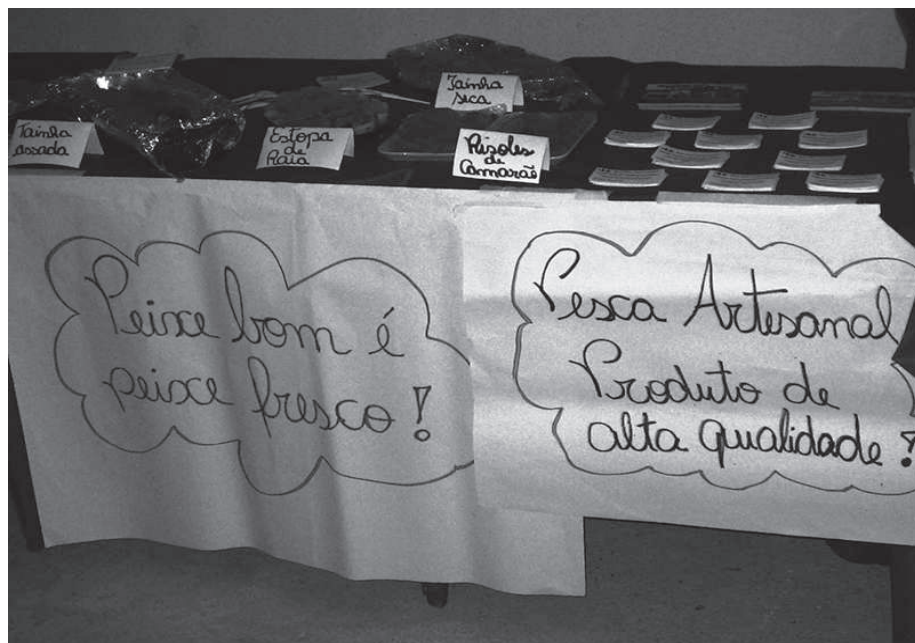 Tainha
seca
Tainha
assada
Estopa
de
Raia
Rizoles
de
Camarão
Peixe bom é
peixe fresco!
Pesca Artesanal
Produto de
alta qualidade!